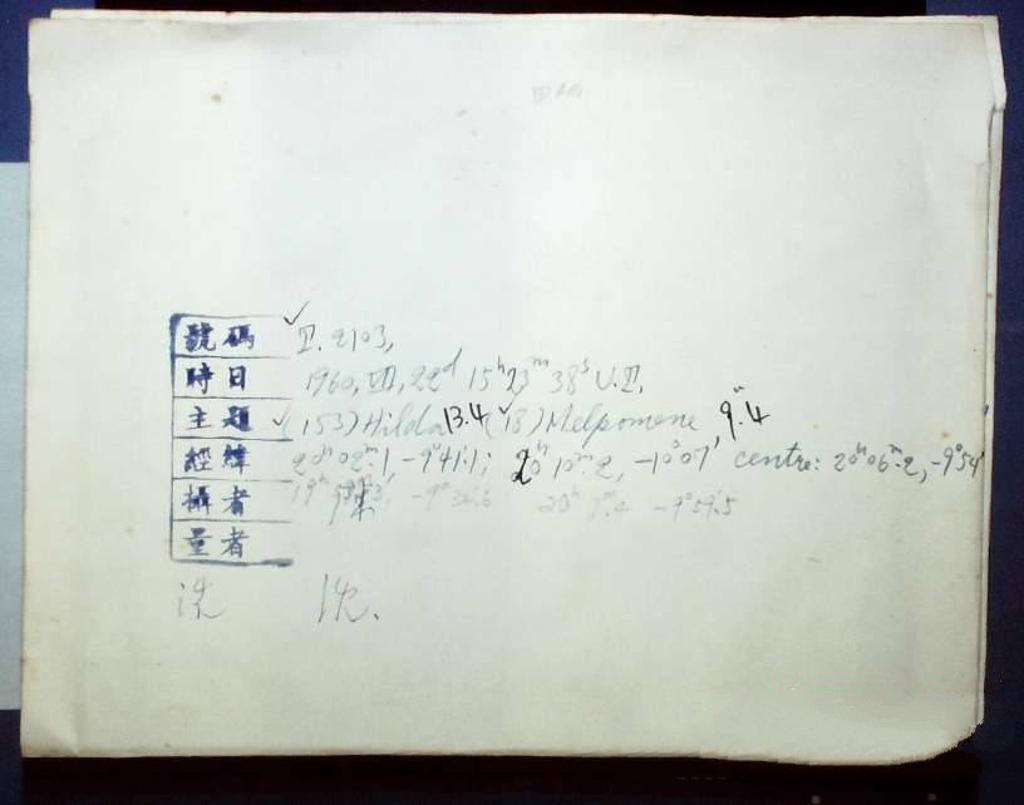 號碼 Ⅱ. 2103,
時日 1960, Ⅶ, 22ᵈ 15ʰ23ᵐ 38ˢ U.T.
主題 (153) Hilda 13.4 (18) Melpomene, 9.4
經緯 20ʰ02ᵐ.1, -9°41'.1; 20ʰ10ᵐ.2, -10°07' centre: 20ʰ06ᵐ.2, -9°54'
攝者 -9°32'.6 -9°59'.5
量者
洗 沈.